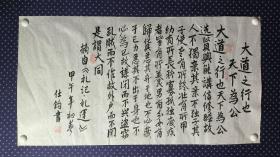 大道之行也
天下為公
大道之行也天下為公
选賢與能講信修睦故
人不獨親其親不獨子其
子使老有所終壮有所用
幼有所長矜寡孤独廢疾
者皆有所養男有分女有
歸貨恶其棄於地也不必藏
于己力恶其不出于身也不必
為己是故謀閉而不興盗竊
乱賊而不作故外户而不閉
是謂大同
摘自《礼记·礼运》
甲午年初冬
仕钧書